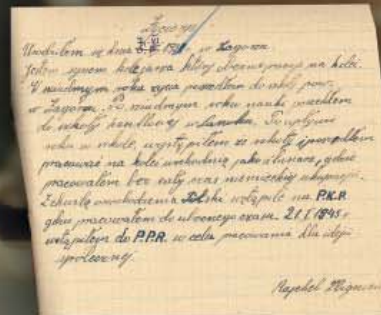 Życiorys
Urodziłem się dnia w Zagórzu
Jestem synem kolejarza który obecnie pracuje na kolei.
W siódmym roku życia poszedłem do szkoły pow.
w Zagórzu. Po siódmym roku nauki poszedłem
do szkoły handlowej w Sanoku. Po upływie
roku w szkole, wystąpiłem ze szkoły i poszedłem
pracować na kolei wschodniej jako ślusarz, gdzie
pracowałem bez cały czas niemieckiej okupacji.
Z chwilą wschodzenia Polski wstąpiłe na P.K.P.
gdzie pracowałem do obecnego czasu. 21.I.1945 r
wstąpiłem do P.P.R. w celu pracowania dla idei
społecznej.